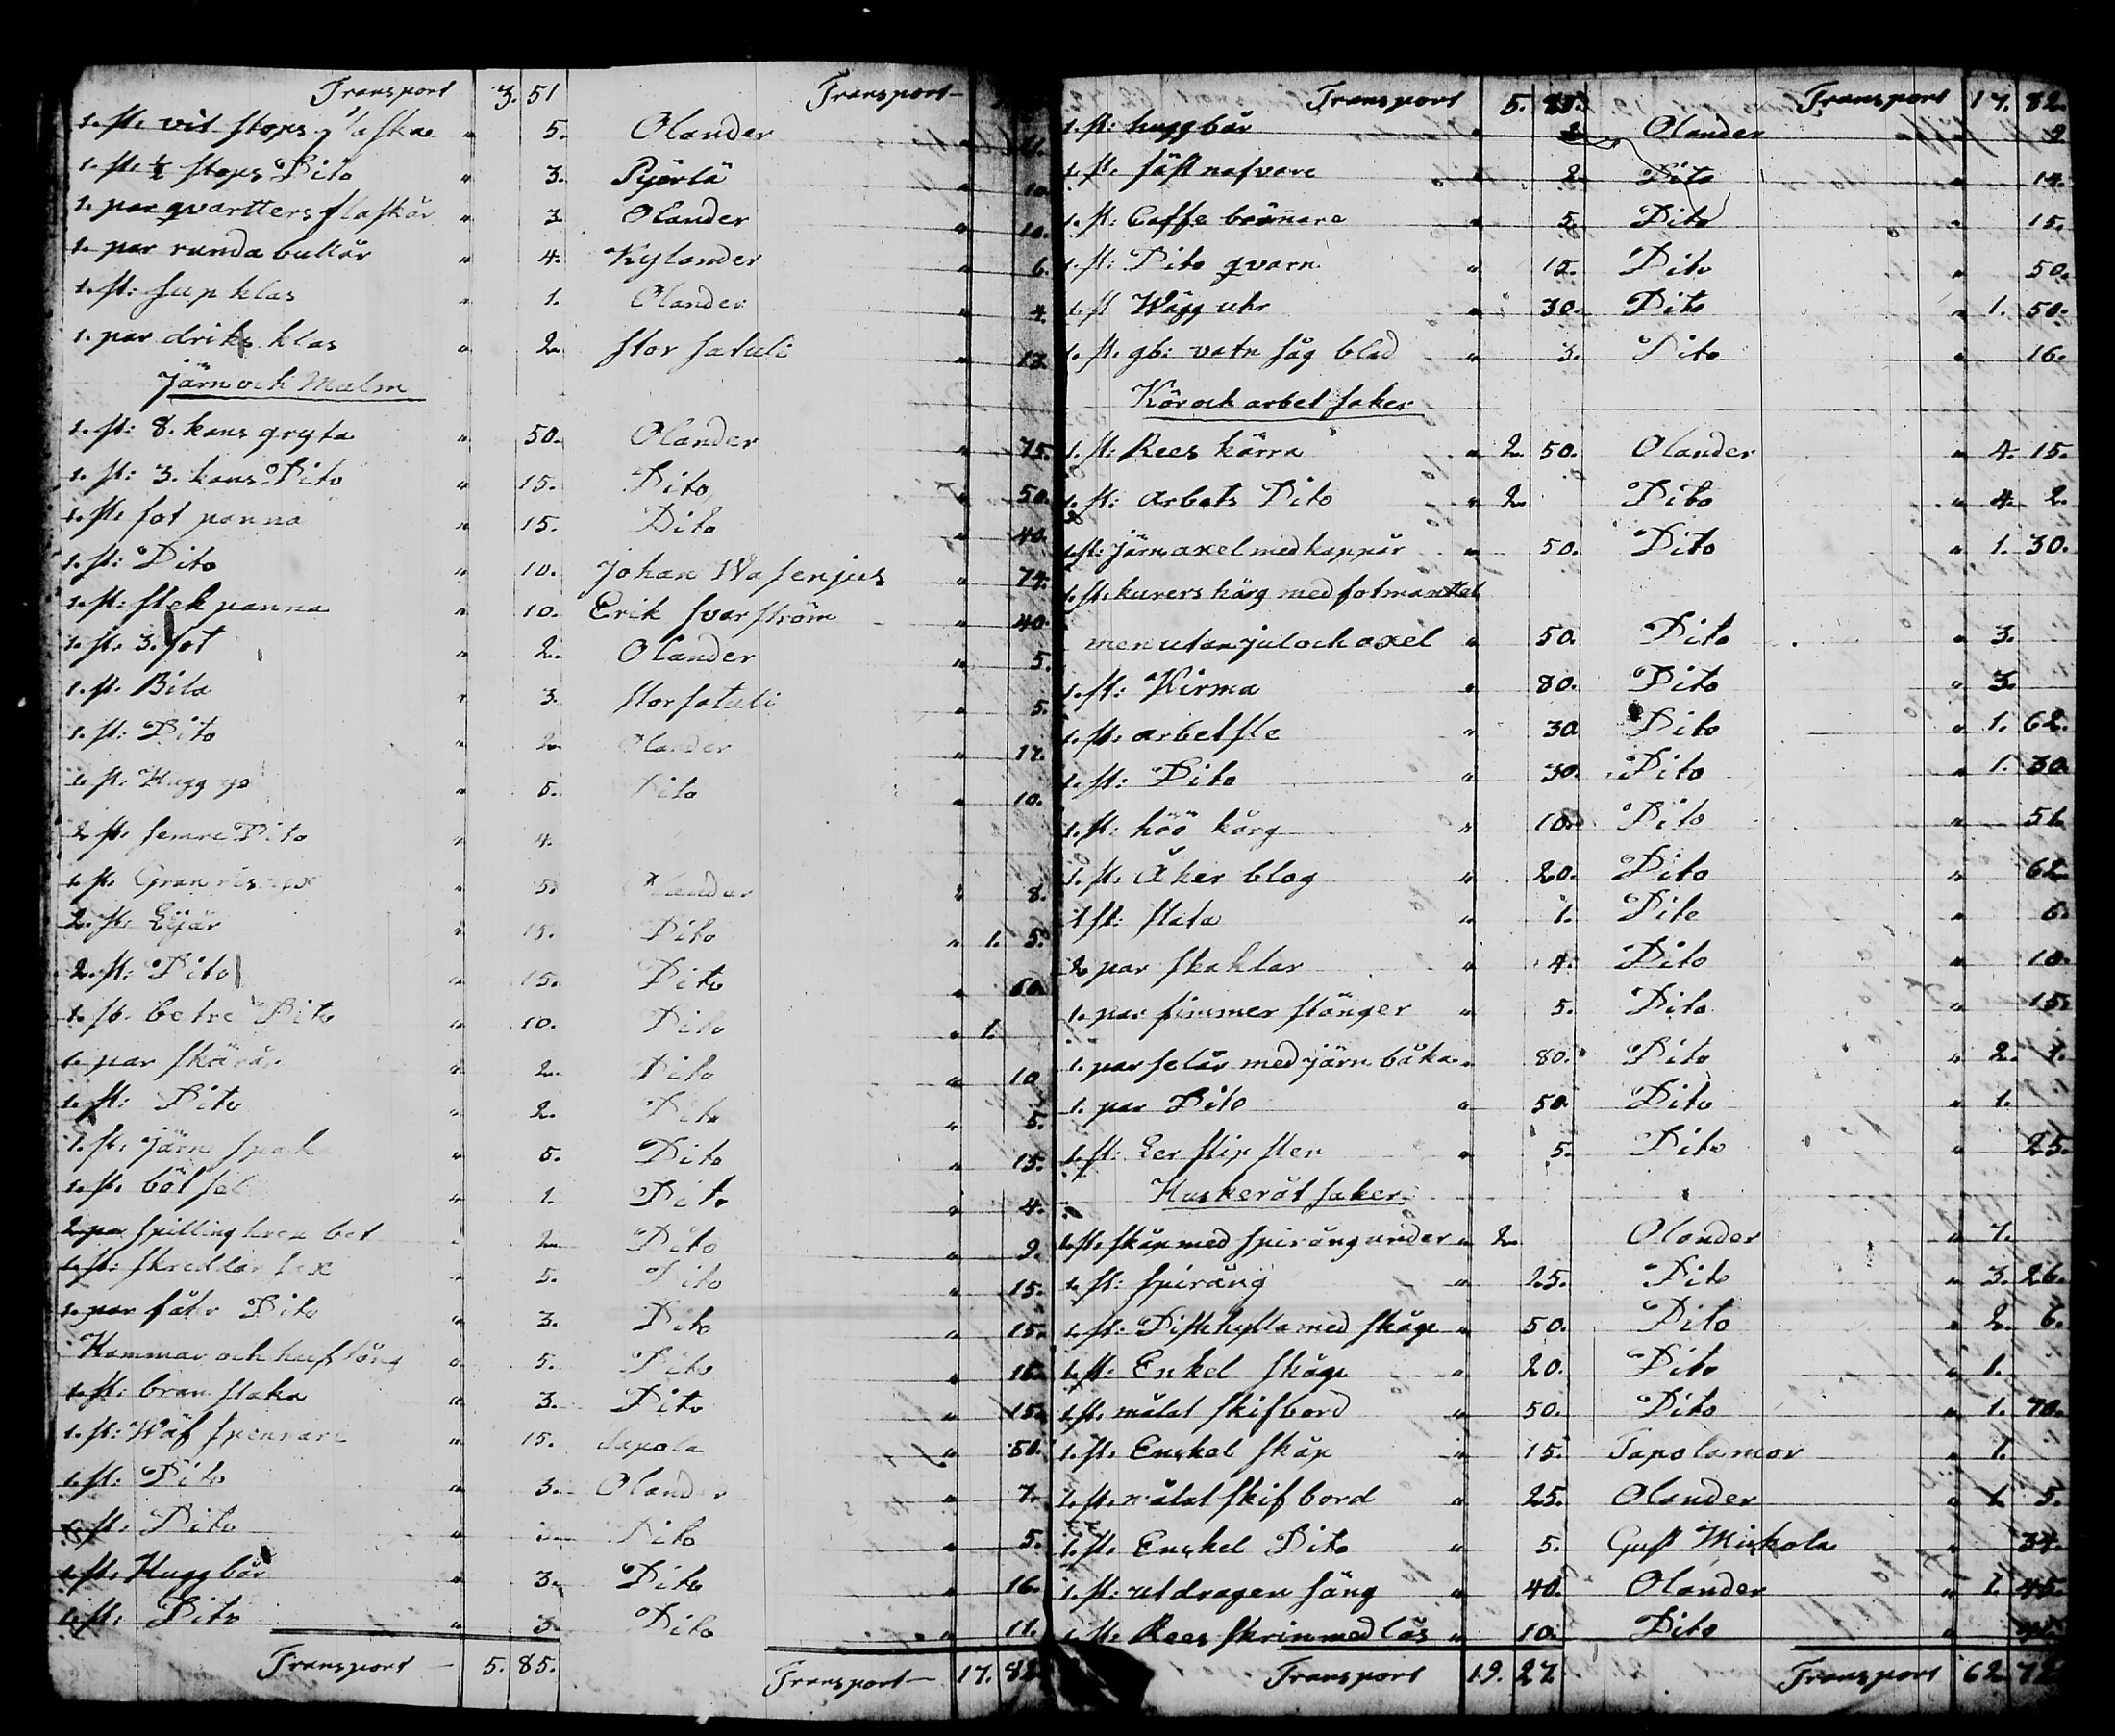 Transport 3. 51 Transport
1. st. vit stops flaska " 5. Olander " 11.
1. st. ½ stops Dito " 3. Pyörlä " 10.
1. par qvartters flaskär " 3 Olander " 10.
1. par runda bullår " 4. Kylander " 6.
1. st: sup klas " 1. Olander " 4.
1. par driks klas " 2 stor satuli " 13.
Järn och Malm
1. st: 8. kans gryta " 50. Olander " 75.
1. st: 3. kans Dito " 15. Dito " 50.
1. st. fot panna " 15. Dito " 40.
1. st: Dito " 10. Johan Wasenjus " 74.
1. st: stek panna " 10. Erik svarström " 40.
1. st. 3. fot " 2. Olander " 5.
1. st. Bila " 3. stor satuli " 5.
1. st: Dito " 2 Olander " 17.
1. st: Hugg yx " 5. Dito " 10.
2 st. semre Dito " 4.
1. st. Gran ris yx " 5. Olander " 8.
2. st. Lijär " 15. Dito " 1. 5.
2. st: Dito " 15. Dito " 60.
1. st. betre Dito " 10. Dito " 1.
1. par skärår " 2. Dito " 10
1. st: Dito " 2. Dito " 5.
1. st. järn spak " 5. Dito " 15.
1. st. böl sel " 1. Dito " 4.
2 par spilling bet 2. Dito " 9.
1. st: skreddar sax 5. Dito " 15.
1. par fåtr Dito " 3. Dito " 15.
Hammar och huf tång " 5. Dito " 16.
1. st: bran staka " 3. Dito " 15.
1. st: Wäf spennare " 15. Sapola " 50.
1. st: Dito " 3. Olander " 7.
1. st. Dito " 3. Dito " 5.
1. st. Huggbår " 3. Dito " 16.
1. st. Dito " 3. Dito " 11.
Transport 5. 85. Transport 17. 82.
Transport 5. 85. Transport 17. 82.
1. st: huggbår " 2 Olander " 9.
1. st. fäst nafvare " 2. Dito " 14.
1. st: Caffe brännare " 5. Dito " 15.
1. st: Dito qvarn " 15. Dito " 50.
1. st Wägg uhr " 30. Dito " 1. 50.
1. st. gb: vatn såg blad " 3. Dito " 16.
Kör och arbet saker
1. st: Rees kärra " 2. 50. Olander " 4. 15.
1. st: arbets Dito " 2. Dito " 4. 2.
1. st: järn axel med kappår " 50. Dito " 1. 30.
1. st. kurers kärg med fotmanttel
men utan jul och axel " 50. Dito " 3.
1. st: Kirma " 80. Dito " 3.
1. st. arbetsle " 30. Dito " 1. 62.
1. st: Dito " 30. Dito " 1. 30.
1. st: höö kärg " 10. Dito " 51.
1. st. Åker blog " 20. Dito " 62.
1 st: slata " 1. Dito " 6.
2 par skaklar " 4. Dito " 10.
1. par fimmer stänger " 5. Dito " 15.
1. par selår med järn båka " 80. Dito " 2. 1.
1. par Dito " 50 Dito " 1.
1. st: Ler slip sten " 5. Dito " 25.
Huskeråt saker
1. st. skåp med spirång under " 2 Olander " 7.
1. st: spiräng " 25. Dito " 3. 26.
1. st: Diskhylla med skåp " 50. Dito " 2. 6.
1. st: Enkel skåp " 20. Dito " 1.
1. st. målat skifbord " 50. Dito " 1. 70.
1. st. Enskel skåp " 15. Sapola mor " 1.
1. st. målat skif bord " 25. Olander " 1. 5.
1. st. Enskel Dito " 5. Gust Mickola " 34.
1. st: utdragen säng " 40. Olander " 1. 45.
1. st. Rees skrin med lås " 10. Dito "
Transport 19. 27 Transport 62. 72.